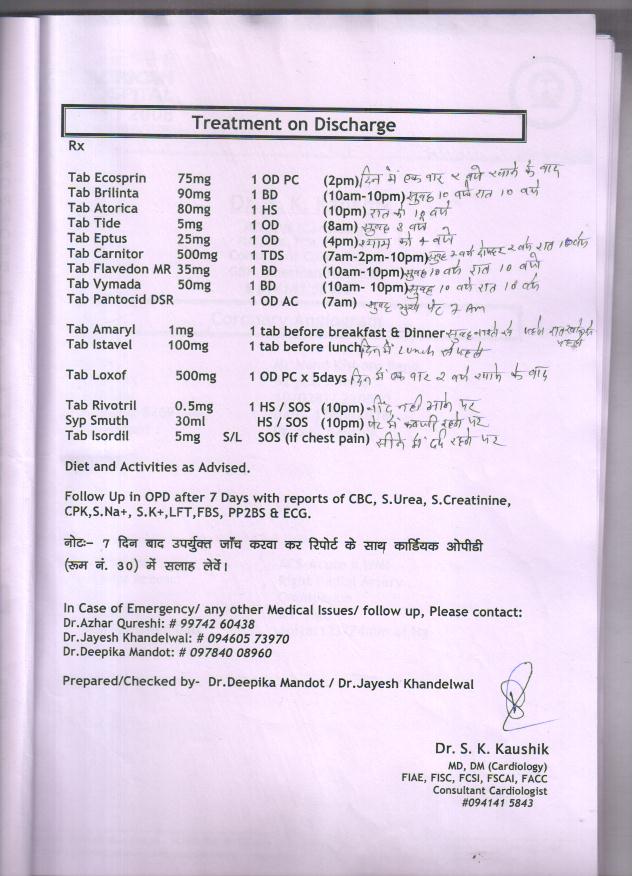 Treatment on Discharge
Rx
Tab Ecosprin 75mg 1 OD PC (2pm) दिन में एक बार २ बजे खाने के बाद
Tab Brilinta 90mg 1 BD (10am-10pm) सुबह १० बजे रात १० बजे
Tab Atorica 80mg 1 HS (10pm) रात को १० बजे
Tab Tide 5mg 1 OD (8am) सुबह 8 बजे
Tab Eptus 25mg 1 OD (4pm) शाम को 4 बजे
Tab Carnitor 500mg 1 TDS (7am-2pm-10pm) सुबह 7 बजे दोपहर २ बजे रात 10 बजे
Tab Flavedon MR 35mg 1 BD (10am-10pm) सुबह १० बजे रात १० बजे
Tab Vymada 50mg 1 BD (10am- 10pm) सुबह १० बजे रात १० बजे
Tab Pantocid DSR 1 OD AC (7am) सुबह भुखे पेट 7 Am
Tab Amaryl 1mg 1 tab before breakfast & Dinner सुबह नाश्ते से पहले
Tab Istavel 100mg 1 tab before lunch दिन में Lunch से पहले
Tab Loxof 500mg 1 OD PC x 5days दिन में एक बार २ बजे खाने के बाद
Tab Rivotril 0.5mg 1 HS / SOS (10pm) नींद नही आने पर
Syp Smuth 30ml HS / SOS (10pm) पेट में कब्जी रहने पर
Tab Isordil 5mg S/L SOS (if chest pain) सीने में दर्द रहने पर
Diet and Activities as Advised.
Follow Up in OPD after 7 Days with reports of CBC, S.Urea, S.Creatinine,
CPK,S.Na+, S.K+,LFT,FBS, PP2BS & ECG.
नोटः- 7 दिन बाद उपर्युक्त जाँच करवा कर रिपोर्ट के साथ कार्डियक ओपीडी
(रूम नं. 30) में सलाह लेवें।
In Case of Emergency/ any other Medical Issues/ follow up, Please contact:
Dr.Azhar Qureshi: # 99742 60438
Dr.Jayesh Khandelwal: # 094605 73970
Dr.Deepika Mandot: # 097840 08960
Prepared/Checked by- Dr.Deepika Mandot / Dr.Jayesh Khandelwal
Dr. S. K. Kaushik
MD, DM (Cardiology)
FIAE, FISC, FCSI, FSCAI, FACC
Consultant Cardiologist
#094141 5843